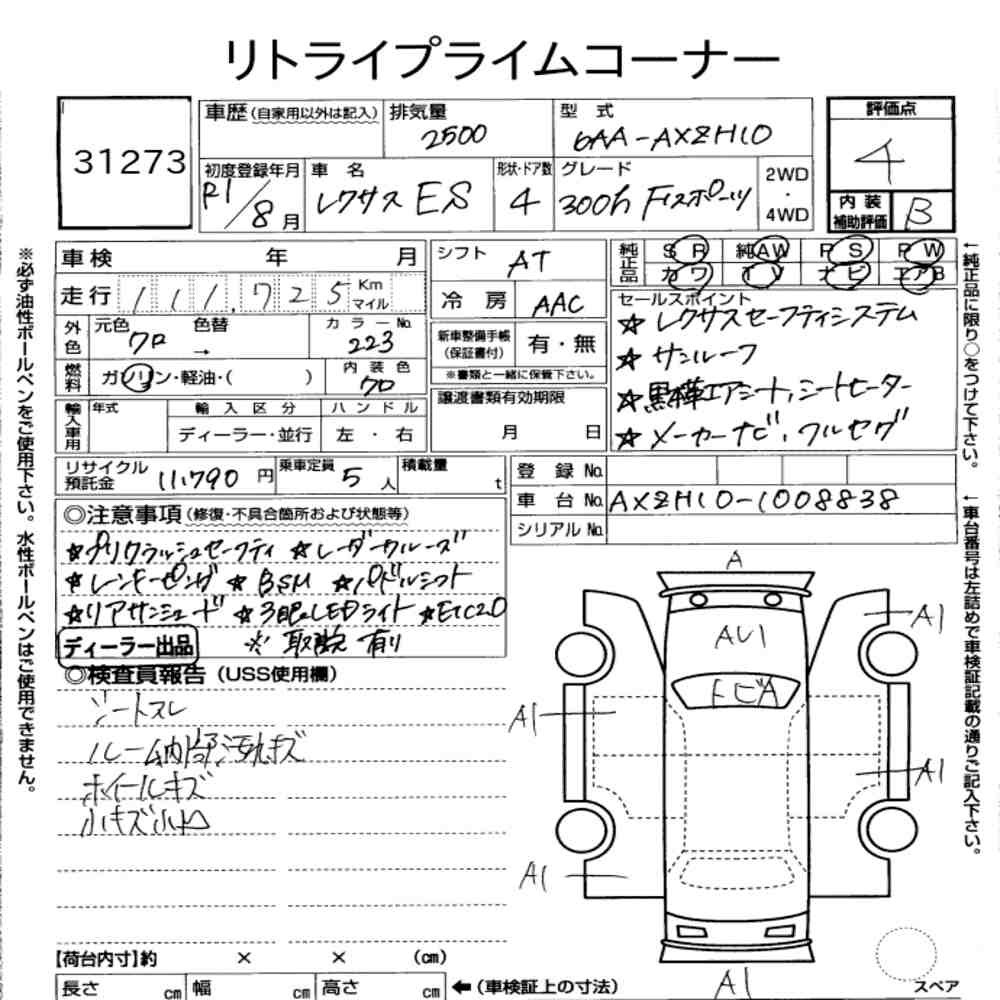 リトライプライムコーナー
31273
車歴(自家用以外は記入) 排気量 2500 型式 6AA-AXZH10
評価点 4
初度登録年月 R1/8月 車名 レクサス ES 形状・ドア数 4 グレード 300h Fスポーツ 2WD・4WD
内装補助評価 B
車検 年 月
シフト AT
純正品 SR 純AW PS PW
カワ TV ナビ エアB
走行 111,725 Km マイル
冷房 AAC
セールスポイント
☆レクサスセーフティシステム
外色 元色 クロ 色替 → カラーNo. 223
新車整備手帳(保証書付) 有・無
※書類と一緒に保管下さい。
☆サンルーフ
燃料 ガソリン・軽油・( ) 内装色 クロ
譲渡書類有効期限
月 日
☆黒革エアシート,シートヒーター
輸入車用 年式 輸入区分 ハンドル
ディーラー・並行 左・右
☆メーカーナビ,フルセグ
リサイクル預託金 11,790円 乗車定員 5人 積載量 t
登録No.
車台No. AXZH10-1008838
シリアルNo.
◎注意事項(修復・不具合箇所および状態等)
☆プリクラッシュセーフティ ☆レーダークルーズ
☆レンキーピング ☆BSM ☆パドルシフト
☆リアサンシェード ☆3眼LEDライト ☆ETC2.0
ディーラー出品 ※取説有り
◎検査員報告(USS使用欄)
シートスレ
ルーム内部汚れキズ
ホイールキズ
小キズ小凹
A
A1
AU1
トビA
A1
A1
A1
A1
スペア
【荷台内寸】約 × × (cm)
長さ cm 幅 cm 高さ cm ←(車検証上の寸法)
※必ず油性ボールペンをご使用下さい。水性ボールペンはご使用できません。
←純正品に限り○をつけて下さい。
←車台番号は左詰めで車検証記載の通りご記入下さい。